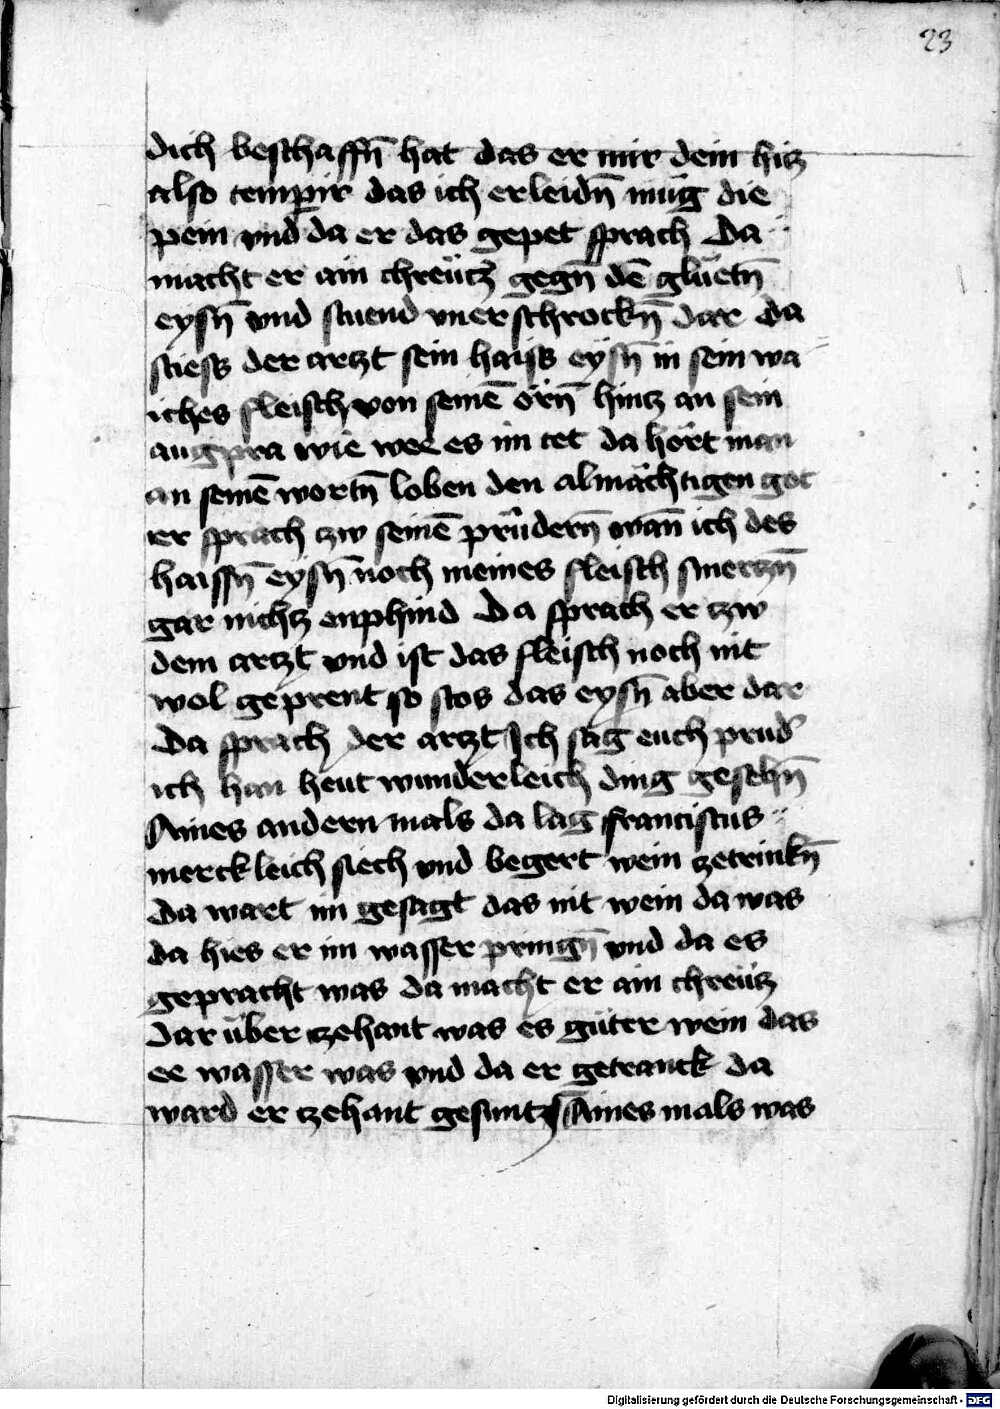 23
dich beschaffn̄ hat das er mir dein hitz
also temp̱ir das ich erleidn̄ müg die
pein vnd da er das gepet sprach Da
macht er ain chreütz gegn̄ dē glüetn̄
eysn̄ vnd stuend vnerschrockn̄ dar da
stiess der artzt sein haiss eysn̄ in sein wa
iches fleisch von seinē örn̄ hintz an sein
augpra wie wee es im tet da hört man
an seinē wortn̄ loben den almächtigen got
er sprach tzw seinē prüdern̄ wān ich des
haissn̄ eysn̄ noch meines fleisch smertzn̄
gar nichtz enphind Da sprach er tzw
dem artzt vnd ist das fleisch noch nit
wol geprent so stos das eysn̄ aber dar
Da sprach der artzt Ich sag euch prud̓
ich han heut wunderleich ding gesehn̄
Aines andern mals da lag franciscus
merckleich siech vnd begert wein zetrinkn̄
Da wart im gesagt das nit wein da was
da hies er im wasser pringn̄ vnd da es
gepracht was da macht er ain chreütz
dar über tzehant was es güter wein das
ee wasser was vnd da er getranck da
ward er tzehant gesunt Aines mals was
Digitalisierung gefördert durch die Deutsche Forschungsgemeinschaft - DFG